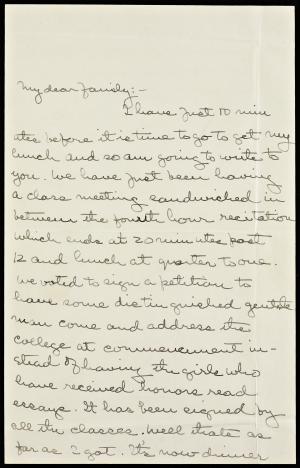 My dear Family:-
I have just 10 min
utes before it is time to go to get my
lunch and so am going to write to
you. We have just been having
a class meeting sandwiched in
between the fourth hour recitation
which ends at 20 minutes past
12 and lunch at quarter to one.
We voted to sign a petition to
have some distinguished gentle
man come and address the
college at commencement in-
stead of having the girls who
have received honors read
essays. It has been signed by
all the classes. Well thats as
far as I got. It's now dinner